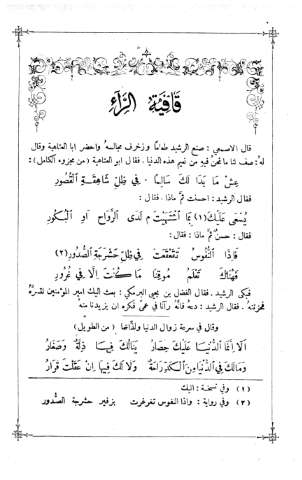 قَافِيَةُ الرَّاءِ
قال الاصمعي : صنع الرشيد طعامًا وزخرف مجالسهُ واحضر ابا العتاهية وقال
لهُ : صف لنا ما نحن فيهِ من نعيم هذه الدنيا . فقال ابو العتاهية ( من مجزوء الكامل ) :
عِشْ مَا بَدَا لَكَ سَالِمًا في ظِلِّ شَاهِقَةِ الْقُصُورِ
فقال الرشيد : احسنت ثمَّ ماذا . فقال :
يُسْعَى عَلَيْكَ (١) بِمَا اشْتَهَيْتَ م لَدَى الرَّوَاحِ اوِ الْبُكُورِ
فقال : حسنٌ ثمَّ ماذا : فقال :
فَإِذَا النُّفُوسُ تَقَعْقَعَتْ فِي ظِلِّ حَشْرَجَةِ الصُّدُورِ (٢)
فَهُنَاكَ تَعْلَمُ مُوقِنًا مَا كُنْتَ إِلَّا فِي غُرُورِ
فبكى الرشيد . فقال الفضل بن يحيى البرمكي : بعث اليك امير المؤمنين لتسرَّهُ
فحزنتهُ : فقال الرشيد : دعهُ فانَّهُ رآنا في عمىً فكره ان يزيدنا منهُ
وقال في سرعة زوال الدنيا ولذَّاتها ( من الطويل )
أَلَا إِنَّمَا الدُّنْيَا عَلَيْكَ حِصَارُ يَنَالُكَ فِيهَا ذِلَّةٌ وَصَغَارُ
وَمَا لَكَ فِي الدُّنْيَا مِنَ الْكَدِّ رَاحَةٌ وَلَا لَكَ فِيهَا إِنْ عَقَلْتَ قَرَارُ
(١) وفي نسخة : اليك
(٢) وفي رواية : واذا النفوس تغرغرت بزفير حشرجة الصدور